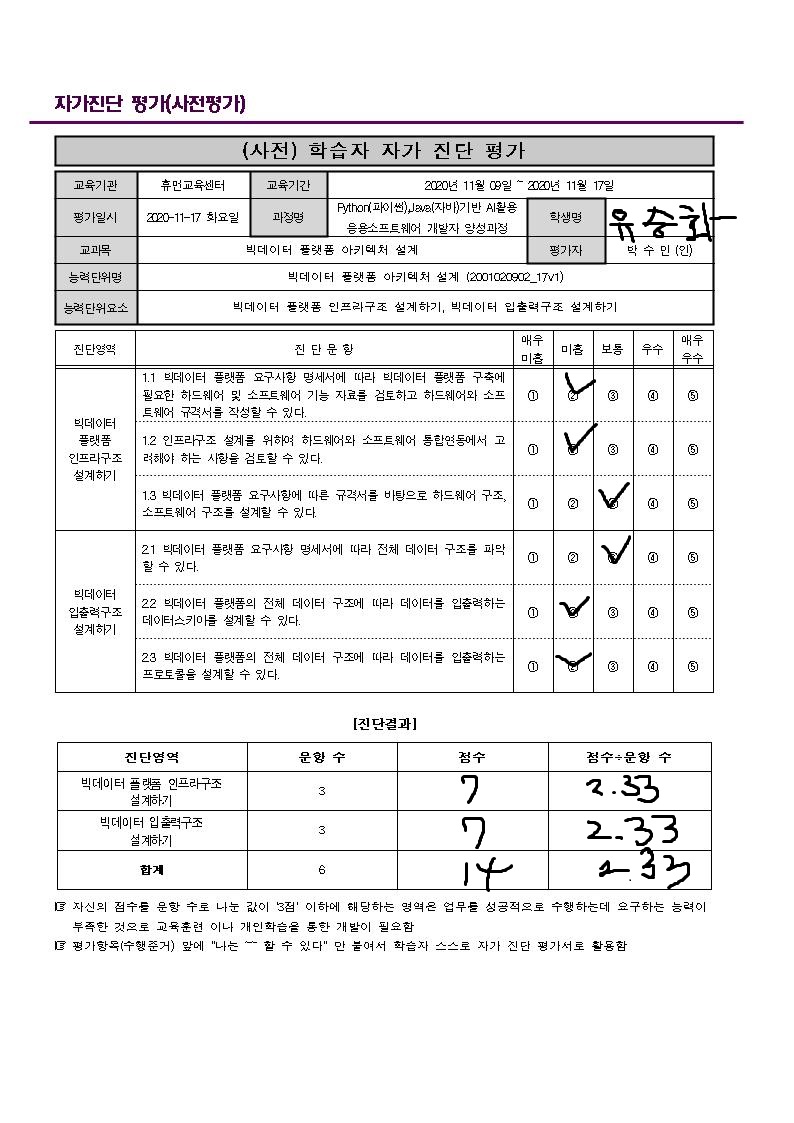 자가진단 평가(사전평가)
(사전) 학습자 자가 진단 평가
교육기관 휴먼교육센터 교육기간 2020년 11월 09일 ~ 2020년 11월 17일
평가일시 2020-11-17 화요일 과정명 Python(파이썬),Java(자바)기반 AI활용
응용소프트웨어 개발자 양성과정 학생명 유승희
교과목 빅데이터 플랫폼 아키텍처 설계 평가자 박 수 민 (인)
능력단위명 빅데이터 플랫폼 아키텍처 설계 (2001020902_17v1)
능력단위요소 빅데이터 플랫폼 인프라구조 설계하기, 빅데이터 입출력구조 설계하기
진단영역 진 단 문 항 매우 미흡 미흡 보통 우수 매우 우수
빅데이터
플랫폼
인프라구조
설계하기
1.1 빅데이터 플랫폼 요구사항 명세서에 따라 빅데이터 플랫폼 구축에
필요한 하드웨어 및 소프트웨어 기능 자료를 검토하고 하드웨어와 소프
트웨어 규격서를 작성할 수 있다.
① ② ③ ④ ⑤
1.2 인프라구조 설계를 위하여 하드웨어와 소프트웨어 통합연동에서 고
려해야 하는 사항을 검토할 수 있다.
① ② ③ ④ ⑤
1.3 빅데이터 플랫폼 요구사항에 따른 규격서를 바탕으로 하드웨어 구조,
소프트웨어 구조를 설계할 수 있다.
① ② ③ ④ ⑤
빅데이터
입출력구조
설계하기
2.1 빅데이터 플랫폼 요구사항 명세서에 따라 전체 데이터 구조를 파악
할 수 있다.
① ② ③ ④ ⑤
2.2 빅데이터 플랫폼의 전체 데이터 구조에 따라 데이터를 입출력하는
데이터스키마를 설계할 수 있다.
① ② ③ ④ ⑤
2.3 빅데이터 플랫폼의 전체 데이터 구조에 따라 데이터를 입출력하는
프로토콜을 설계할 수 있다.
① ② ③ ④ ⑤
[진단결과]
진단영역 문항 수 점수 점수÷문항 수
빅데이터 플랫폼 인프라구조
설계하기 3 7 2.33
빅데이터 입출력구조
설계하기 3 7 2.33
합계 6 14 2.33
☞ 자신의 점수를 문항 수로 나눈 값이 '3점' 이하에 해당하는 영역은 업무를 성공적으로 수행하는데 요구하는 능력이
부족한 것으로 교육훈련 이나 개인학습을 통한 개발이 필요함
☞ 평가항목(수행준거) 앞에 "나는 ~~ 할 수 있다" 만 붙여서 학습자 스스로 자가 진단 평가서로 활용함